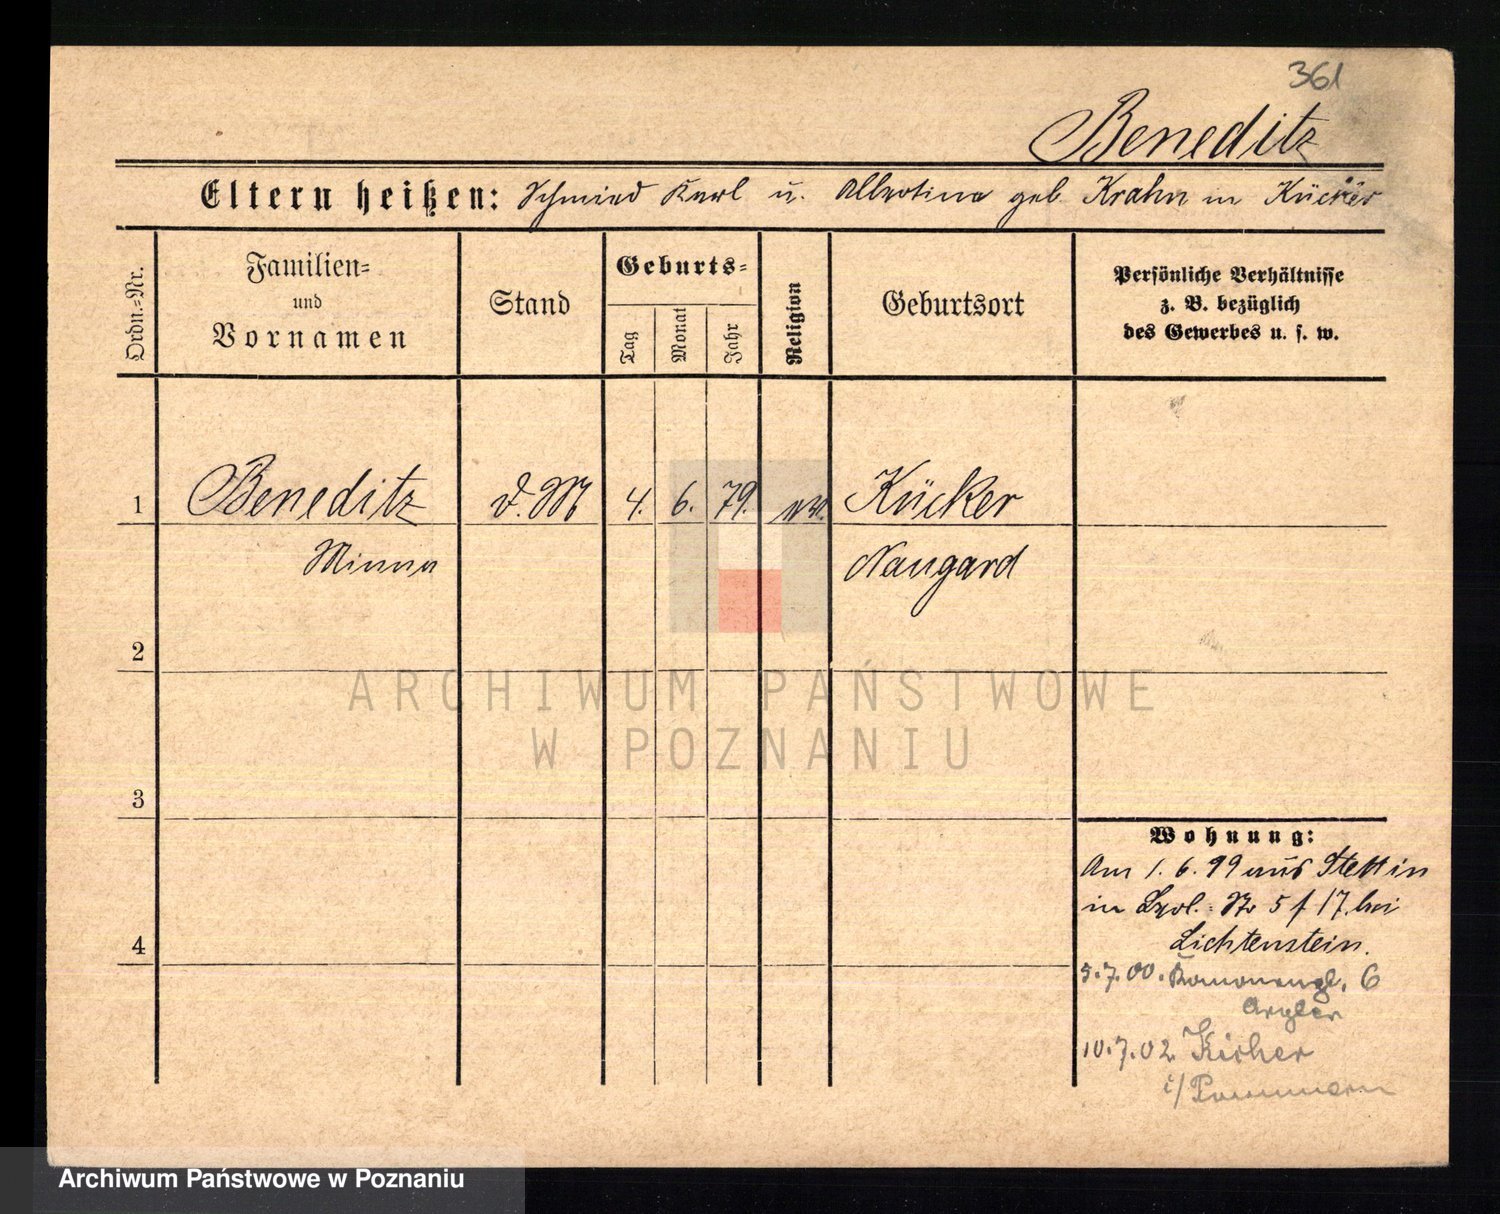 361
Beneditz
Eltern heißen: Schmied Karl u. Albertine geb Krahn in Kücker
Ordn.-Nr.
Familien-
und
Vornamen
Stand
Geburts-
Tag
Monat
Jahr
Religion
Geburtsort
Persönliche Verhältnisse
z. B. bezüglich
des Gewerbes u. s. w.
1 Beneditz d. M 4. 6. 79. Kücker
Minna Naugard
2
3
4
Wohnung:
Am 1. 6. 99 aus Stettin
in 5 f 17. bei
Lichtenstein.
5.7.00. 6
10.7.02
i/ Pommern
ARCHIWUM PAŃSTWOWE
W POZNANIU
Archiwum Państwowe w Poznaniu